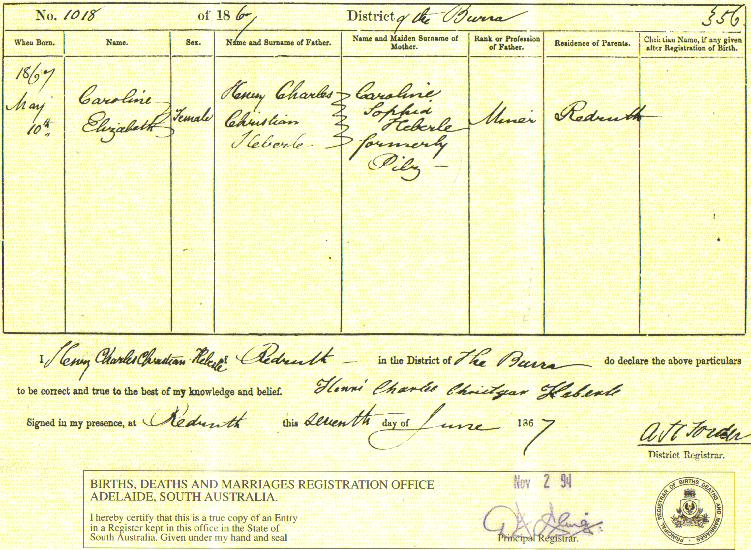 No. 1018 of 1867 District of the Burra 356.
When Born. Name. Sex. Name and Surname of Father. Name and Maiden Surname of Mother. Rank or Profession of Father. Residence of Parents. Christian Name, if any given after Registration of Birth.
1867 May 10th
Caroline Elizabeth
Female
Henry Charles Christian Heberle
Caroline Sophia Heberle formerly Pilz
Miner
Redruth
I Henry Charles Christian Heberle of Redruth in the District of The Burra do declare the above particulars
to be correct and true to the best of my knowledge and belief. Henri Charles Christjan Heberle
Signed in my presence, at Redruth this seventh day of June 1867
District Registrar.
BIRTHS, DEATHS AND MARRIAGES REGISTRATION OFFICE
ADELAIDE, SOUTH AUSTRALIA.
I hereby certify that this is a true copy of an Entry
in a Register kept in this office in the State of
South Australia. Given under my hand and seal
Nov 2 94
Principal Registrar.
PRINCIPAL REGISTRAR OF BIRTHS DEATHS AND MARRIAGES